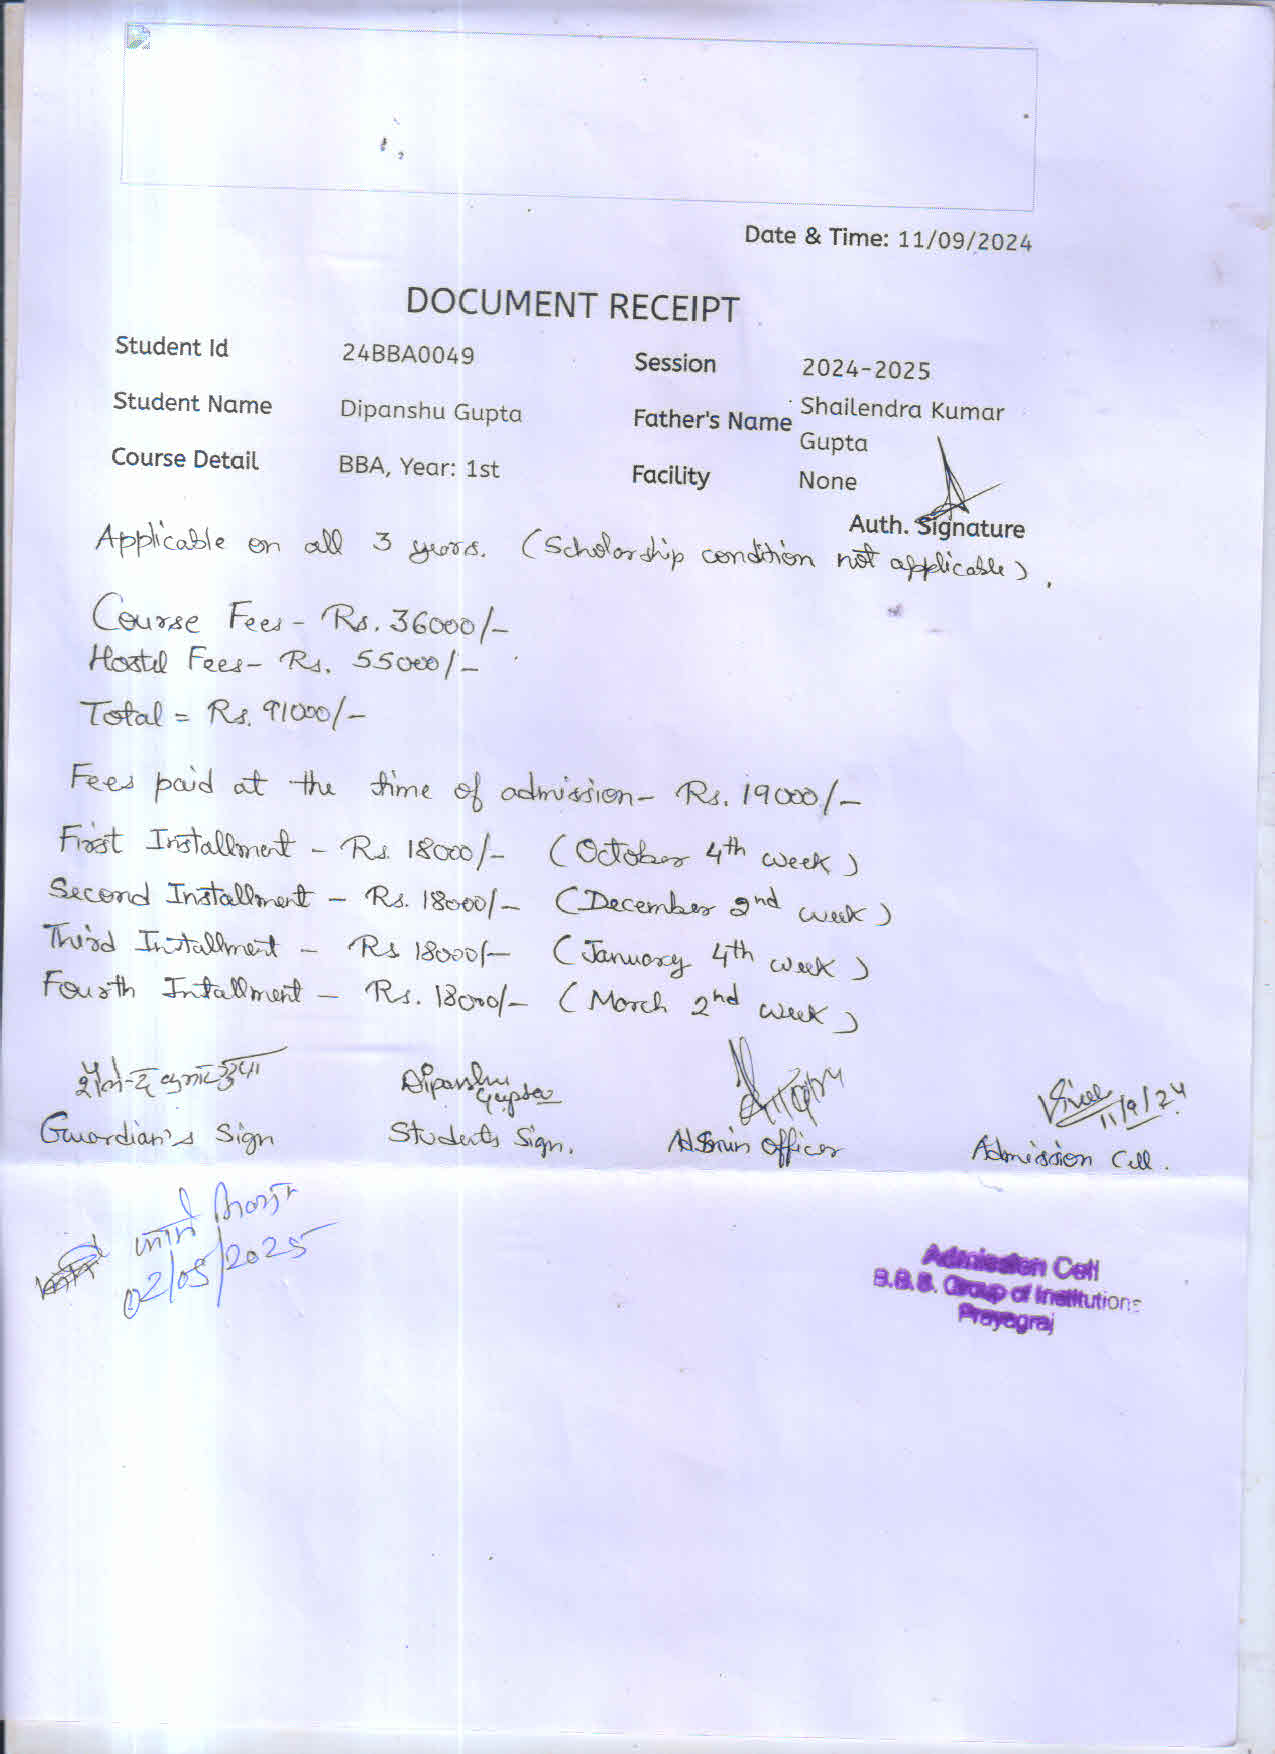 Date & Time: 11/09/2024
DOCUMENT RECEIPT
Student Id 24BBA0049 Session 2024-2025
Student Name Dipanshu Gupta Father's Name Shailendra Kumar Gupta
Course Detail BBA, Year: 1st Facility None
Auth. Signature
Applicable on all 3 years. (Scholarship condition not applicable).
Course Fees - Rs. 36000/-
Hostel Fees - Rs. 55000/-
Total = Rs. 91000/-
Fees paid at the time of admission - Rs. 19000/-
First Installment - Rs. 18000/- (October 4th week)
Second Installment - Rs. 18000/- (December 2nd week)
Third Installment - Rs 18000/- (January 4th week)
Fourth Intallment - Rs. 18000/- (March 2nd week)
शैलेन्द्र कुमार गुप्ता Dipanshu Gupta 11/9/24
Guardian's Sign Students Sign. Admin Officer Admission Cell.
02/05/2025
Admission Cell
B.B.S. Group of Institutions
Prayagraj